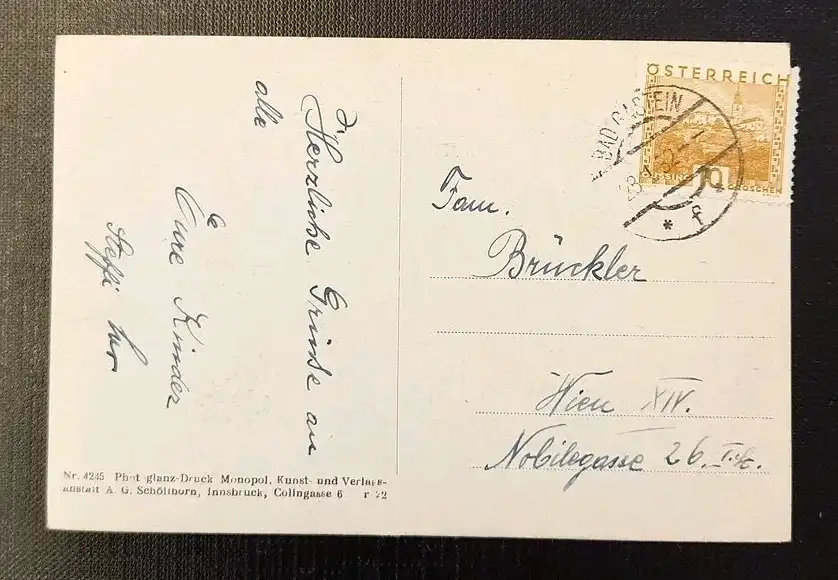 Herzliche Grüsse an
alle
Eure Kinder
Steffi
ÖSTERREICH
GÜSSING 10 GROSCHEN
BAD GASTEIN
* f
Fam.
Brückler
Wien XIV.
Nobilegasse 26.
Nr. 4245 Phot glanz-Druck Monopol, Kunst- und Verlags-
anstalt A. G. Schöllhorn, Innsbruck, Colingasse 6 r 22